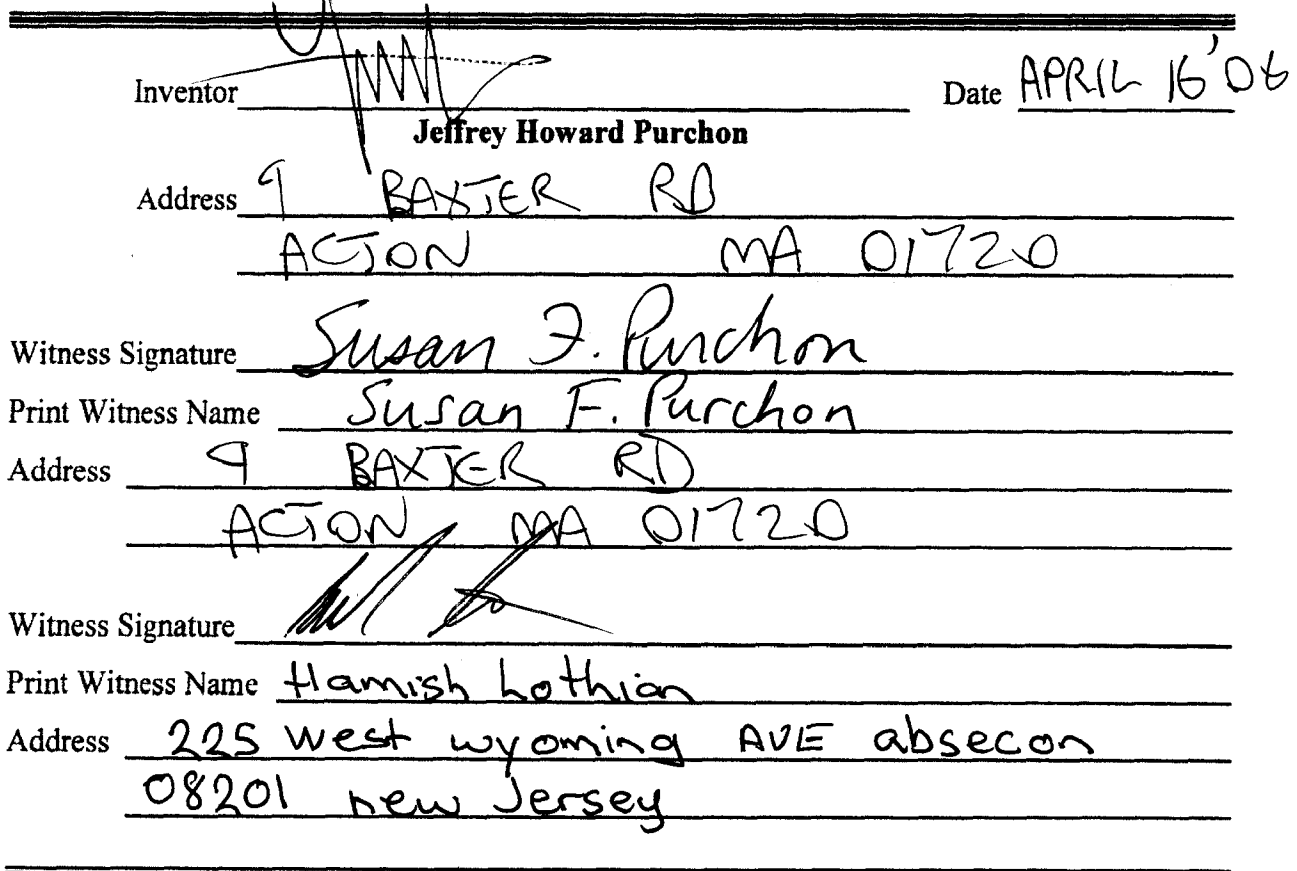 Inventor Date APRIL 16 '06
Jeffrey Howard Purchon
Address 9 BAXTER RD
ACTON MA 01720
Witness Signature Susan F. Purchon
Print Witness Name Susan F. Purchon
Address 9 BAXTER RD
ACTON MA 01720
Witness Signature
Print Witness Name Hamish Lothian
Address 225 West wyoming AVE absecon
08201 new Jersey